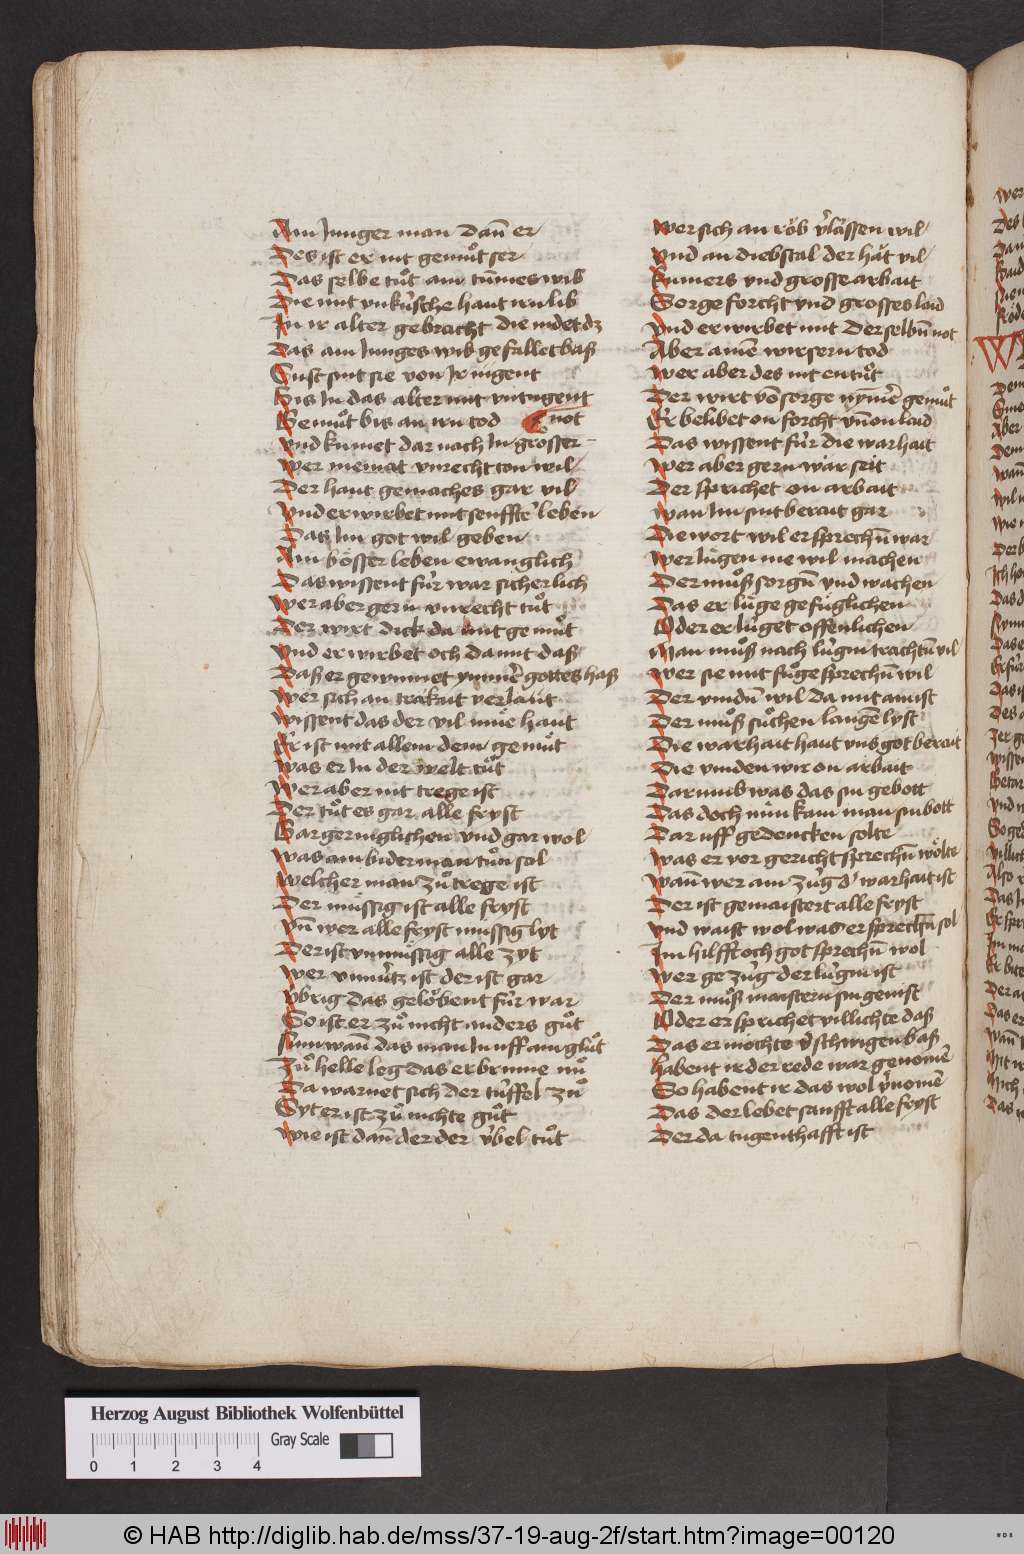 Ain Junger man dañ er
Des ist er nit gemuͦt ser
Das selbe tuͦt ain tum̄es wib
Die mit vnkúsche haut irn lib
In ir alter gebracht die mdet dz
Das ain Junges wib gefallet baß
Sust sint sie von Jr mgent
Bis In das alter mit vntugent
Gemuͦt bis an irn tod not
Vnd kumet dar nach In grosser
Wer memat vnrecht ton wil
Der haut gemaches gar vil
Vnd erwirbet mit senffte leben
Das Im got wil geben
Ain bösser leben ewanglich
Das wissent fúr war sicherlich
Wer aber gern vnrecht tuͦt
Der wirt dick da mit gemuͦt
Vnd erwirbet och da mit daß
Daß er gewinnet ym̄er gottes haß
Wer sich an träkait verlaut
Wissent das der vil müe haut
Er ist mit allem dem gemuͤt
Was er In der welt tuͦt
Wer aber nit trege ist
Der tuͦt es gar alle fryst
Gar geringlichen vnd gar wol
Was ain biderman tuͦn sol
Welcher man zuͦ trege ist
Der müssig ist alle fryst
Vn̄ wer alle fryst mussig lyt
Der ist vnmüssig alle zyt
Wer vnnútz ist der ist gar
Vbrig das geloͤbent fúr war
So ist er zuͦ nicht anders guͦt
Nun wañ das man In vff ain gluͦt
Zuͦ helle leg das er brinne nuͦ
Da warnet sich der túffel zuͦ
Syt er ist zuͦ nichte guͦt
Wie ist dañ der der v́bel tuͦt
Wer sich an röb v̓lässen wil
Vnd an diebstal der hät vil
Kumers vnd grosse arbait
Sorge forcht vnd grosses laid
Vnd erwirbet mit der selbn̄ not
Aber ainē wirsern tod
Wer aber des nit entuͦt
Der wirt võ sorge nym̄er gemuͦt
Er belibet on forcht vn̄ on laid
Das wissent fúr die warhait
Wer aber gern wär seit
Der sprichet on arbait
Wan Im sint berait gar
Die wort wil er sprechn̄ war
Wer lúgen me wil machen
Der muͦß sorgn̄ vnd wachen
Das er lúge gefüglichen
Oder er lúget offenlichen
Man muͦß nach lúgin trachtn̄ vil
Wer sie mit fuͦge sprechn̄ wil
Der vindn̄ wil da mit amist
Der muͦß suͦchen langē lyst
Die warhait haut vns got berait
Die vinden wir on arbait
Darumb was das sin gebott
Das doch nun kam man sin bott
Dar vff gedencken solte
Was er vor gericht sprechn̄ wölte
Wañ wer ain zúg d̓ warhait ist
Der ist gemaistert alle fryst
Vnd waist wol was er sprechn̄ sol
Im hilfft och got sprechn̄ wol
Wer gezúg der lúgin ist
Der muͦß maistern sin genist
Oder er sprichet villichte daß
Das er möchte v̓schwigen baß
Habent ir der rede war genomē
So habent ir das wol v̓nomē
Das der lebet sanfft alle fryst
Der da tugenthafft ist
Herzog August Bibliothek Wolfenbüttel
Gray Scale
0 1 2 3 4
© HAB http://diglib.hab.de/mss/37-19-aug-2f/start.htm?image=00120